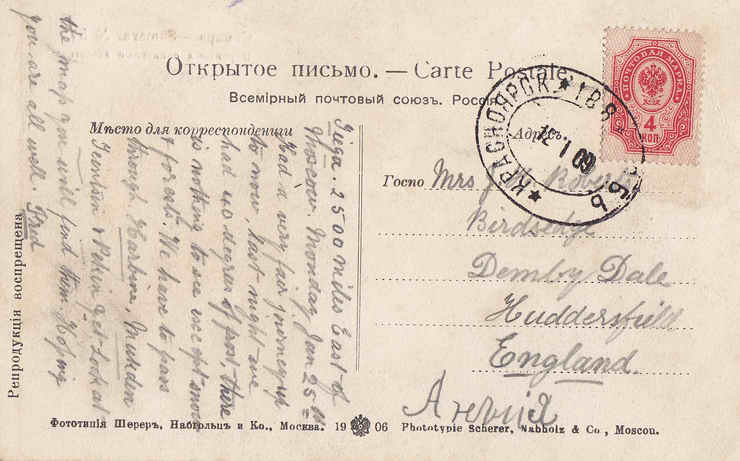 Открытое письмо. — Carte Postale.
Всемірный почтовый союзъ. Россія
Мѣсто для корреспонденціи
Адресъ
ПОЧТОВАЯ МАРКА
4
КОП
КРАСНОЯРСК * 188
12 1 09
Госпо
Mrs J. Roberts
Birdsedge
Demby Dale
Huddersfield
England
Англія
2500 miles East of
Moscow. Monday Jan 25th
Had a very fair journey up
to now, last night we
had 40 degrees of frost there
is nothing to see except snow
& forests. We have to pass
through Harbine, Mukden
Tientsin & Pekin Get Look at
the map you will find them Hoping
you are all well. Fred
Репродукція воспрещена
Фототипія Шереръ, Набгольцъ и Ко., Москва. 19 06 Phototypie Scherer, Nabholz & Co., Moscou.